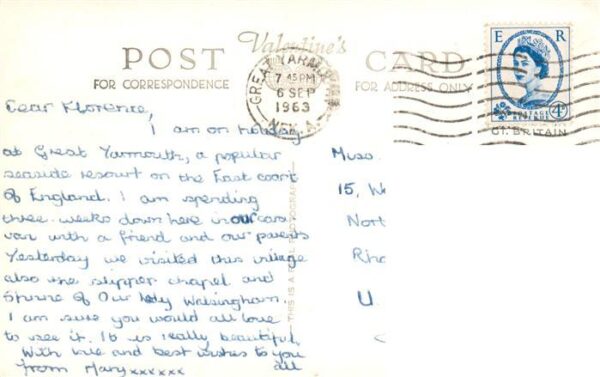 POST Valentine's CARD
FOR CORRESPONDENCE FOR ADDRESS ONLY
GREAT YARMOUTH
7.45 PM
6 SEP
1963
E R
POSTAGE REVENUE
4D
GT. BRITAIN
Dear Florence,
I am on holiday
at Great Yarmouth, a popular
seaside resort on the East coast
of England. I am spending
three weeks down here in our cara
van with a friend and our parents
Yesterday we visited this village
also the slipper chapel and
Shrine of Our lady Walsingham.
I am sure you would all love
to see it. It is really beautiful.
With love and best wishes to you
all
from Mary xxxxxx
THIS IS A REAL PHOTOGRAPH
15,
U.